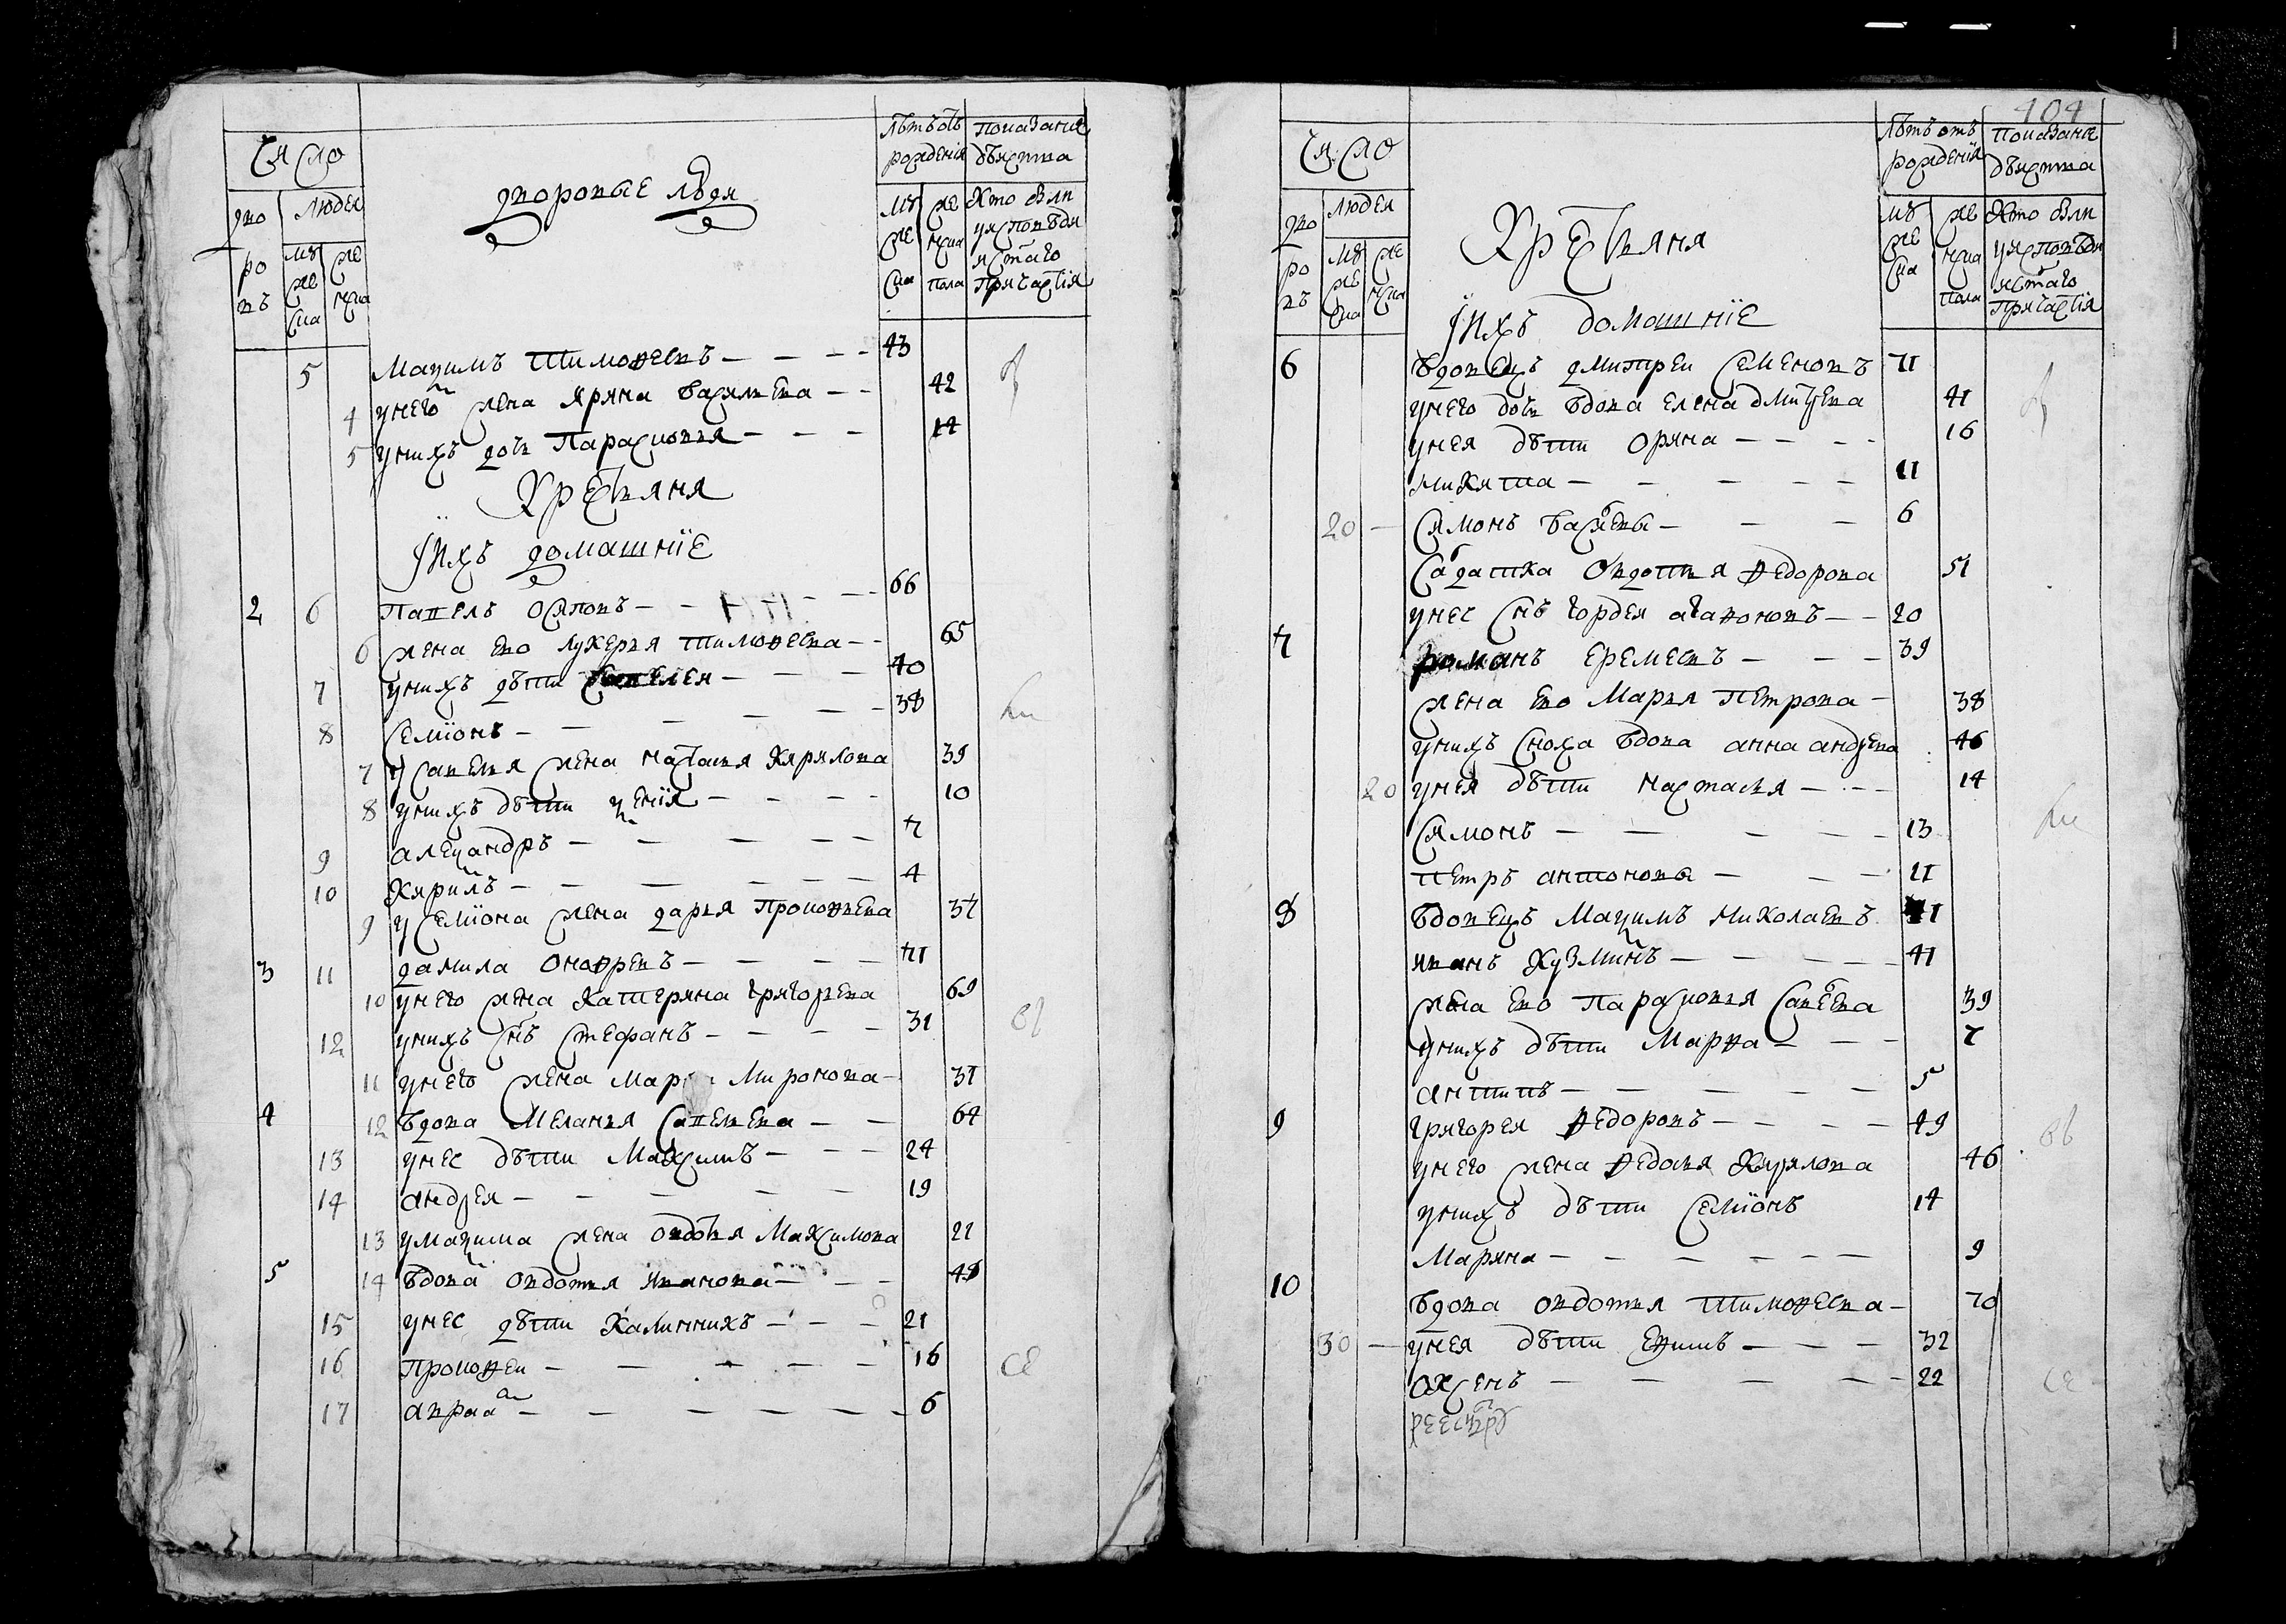 Число
дво ровъ
людеи
муже ска
же нска
дворовые люди
лѣтъ отъ рождения
муже ска
же нска пола
показание дѣиства
кто были у исповѣди и с͠таго причастия
5 Максимъ Тимофеевъ 43
4 у него жена Ирина Василева 42
5 у нихъ дочь Парасковия 14
Крестьяня
и ихъ домашние
2 6 Павелъ Осиповъ 66
6 жена ево Лукерия Тимофеева 65
7 у нихъ дѣти Савелеи 40
8 Семионъ 38
7 у Савелия жена Настасия Кирилова 39
8 у нихъ дѣти 10
9 Александръ 7
10 Кирилъ 4
9 у Семиона жена Дария Прокофьева 37
3 11 Данила Онофревъ 71
10 у него жена Катерина Григорьева 69
12 у нихъ снъ Стефанъ 31
11 у него жена Миронова 31
4 12 вдова Мелания Савельева 64
13 у нее дѣти Максимъ 24
14 Андреи 19
13 у Максима жена Овдотия Максимова 21
5 14 вдова Овдотия Иванова 48
15 у нее дѣти Калинникъ 21
16 Прокофеи 16
17 Авраамъ 6
404
Число
дво ровъ
людеи
муже ска
же нска
Крестьяня
и ихъ домашние
лѣтъ отъ рождения
муже ска
же нска пола
показание дѣиства
кто были у исповѣди и с͠таго причастия
6 вдовецъ Дмитреи Семеновъ 71
у него дочь вдова Елена Дмитрева 41
у нея дѣти Орина 16
Никита 11
20 Симонъ Васильевы 6
салдатка Овдотия Федорова 51
у нее снъ Гордеи Агафоновъ 20
7 Романъ Еремеевъ 39
жена ево Мария Петрова 38
у нихъ сноха вдова Анна Андрева 46
20 у нея дѣти Настасия 14
Симонъ 13
Петръ Антоновы 11
8 вдовецъ Максимъ Николаевъ 71
Иванъ Кузминъ 41
жена ево Парасковия Савелева 39
у нихъ дѣти Марфа 7
Антипъ 5
9 Григореи Федоровъ 49
у него жена Федосия Кирилова 46
у нихъ дѣти Семионъ 14
Марина 9
10 вдова Овдотия Тимофеева 70
30 у нея дѣти Ефимъ 32
Аксенъ 22
реестръ